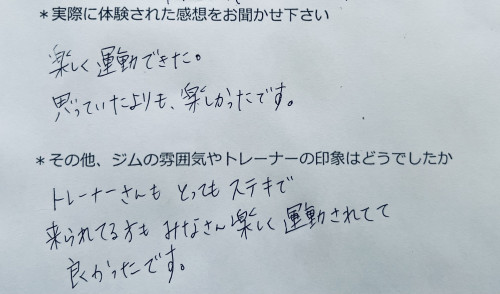 *実際に体験された感想をお聞かせ下さい
楽しく運動できた。
思っていたよりも、楽しかったです。
*その他、ジムの雰囲気やトレーナーの印象はどうでしたか
トレーナーさんも とっても ステキで
来られてる方も みなさん楽しく運動されてて
良かったです。